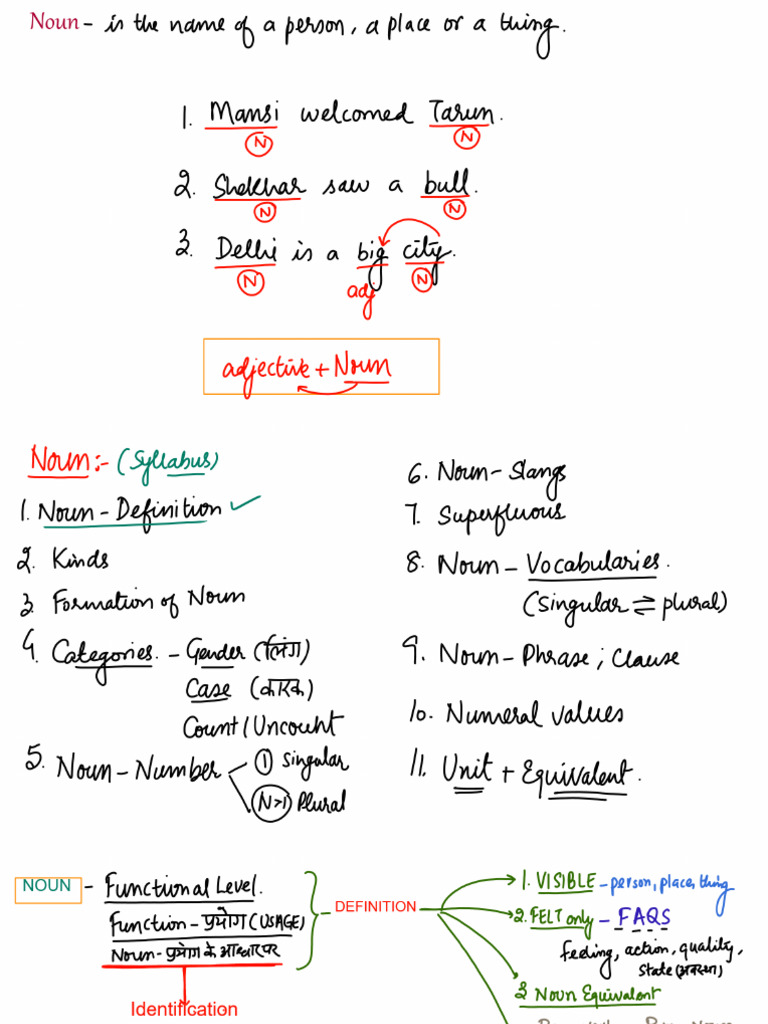 Noun - is the name of a person, a place or a thing.
1. Mansi welcomed Tarun.
N N
2. Shekhar saw a bull.
N N
3. Delhi is a big city.
N adj N
adjective + Noun
Noun:- (Syllabus)
1. Noun - Definition ✓
2. Kinds
3. Formation of Noun
4. Categories - Gender (लिंग)
Case (कारक)
Count/Uncount
5. Noun - Number
① Singular
N>1 Plural
6. Noun - Slangs
7. Superfluous
8. Noun - Vocabularies.
(Singular ⇌ plural)
9. Noun - Phrase; Clause
10. Numeral values
11. Unit + Equivalent.
NOUN - Functional Level.
Function - प्रयोग (USAGE)
Noun - प्रयोग के आधार पर
Identification
DEFINITION
1. VISIBLE - person, place, thing
2. FELT only - FAQS
feeling, action, quality,
state (अवस्था)
3 Noun Equivalent